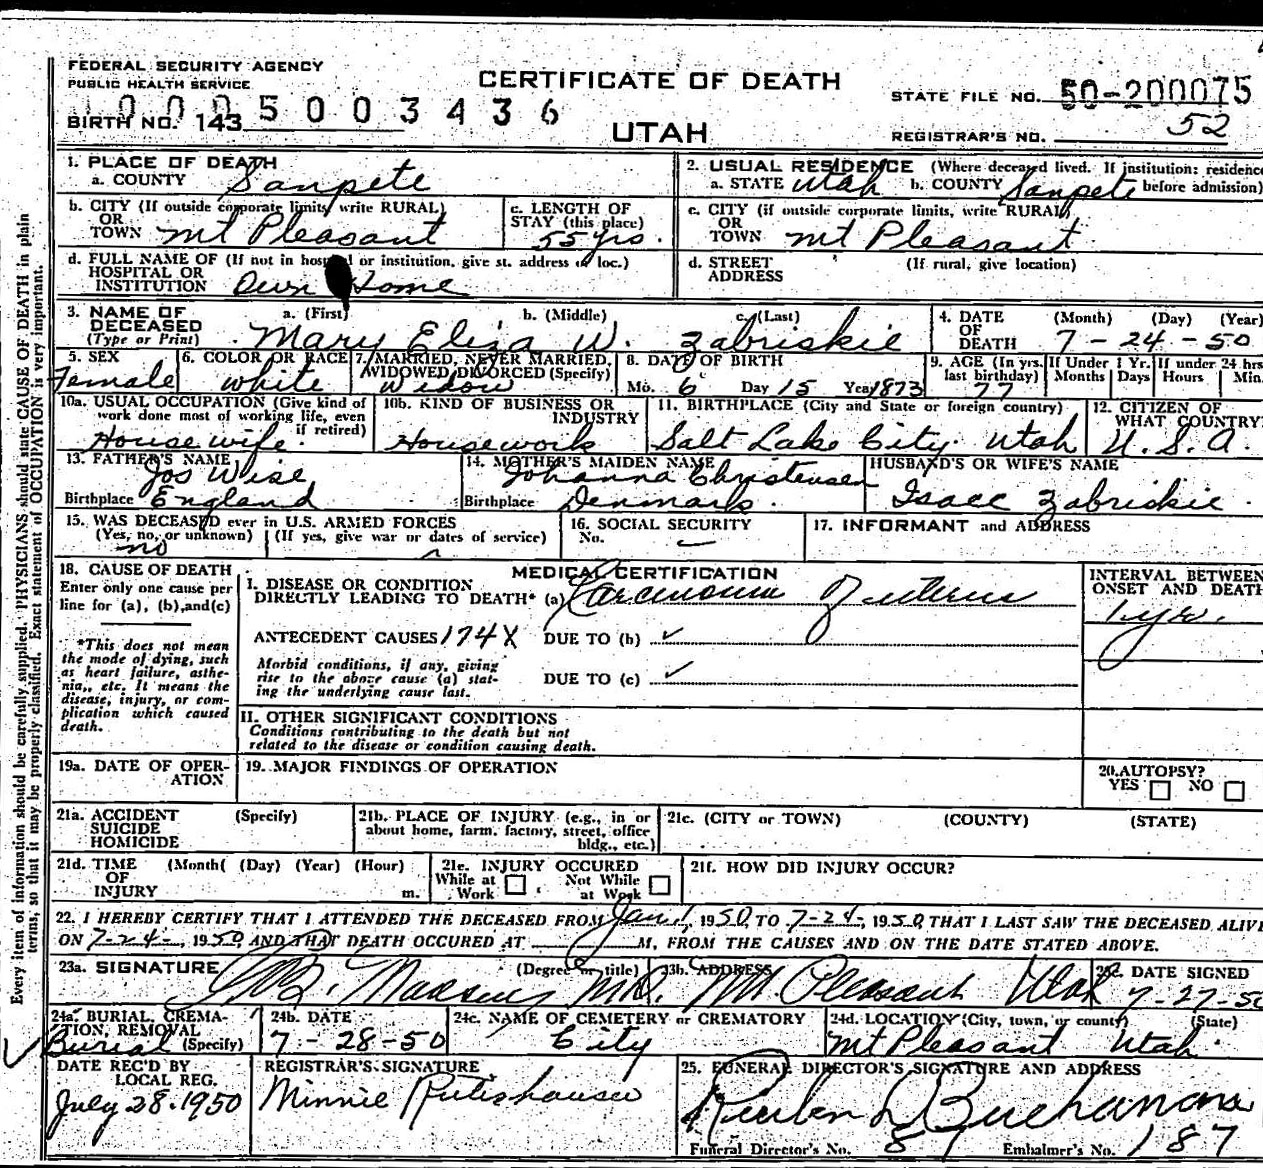 FEDERAL SECURITY AGENCY
PUBLIC HEALTH SERVICE
CERTIFICATE OF DEATH
STATE FILE NO. 50-200075
0005003436
BIRTH NO. 143
UTAH
REGISTRAR'S NO. 52
Every item of information should be carefully supplied. PHYSICIANS should state CAUSE OF DEATH in plain
terms, so that it may be properly classified. Exact statement of OCCUPATION is very important.
1. PLACE OF DEATH
a. COUNTY Sanpete
2. USUAL RESIDENCE (Where deceased lived. If institution: residence
a. STATE Utah b. COUNTY Sanpete before admission)
b. CITY (If outside corporate limits, write RURAL)
OR
TOWN Mt Pleasant
c. LENGTH OF
STAY (this place)
55 yrs.
c. CITY (if outside corporate limits, write RURAL)
OR
TOWN Mt Pleasant
d. FULL NAME OF (If not in hospital or institution, give st. address or loc.)
HOSPITAL OR
INSTITUTION Own Home
d. STREET (If rural, give location)
ADDRESS
3. NAME OF DECEASED
(Type or Print)
a. (First) b. (Middle) c. (Last)
Mary Eliza W. Zabriskie
4. DATE OF DEATH
(Month) (Day) (Year)
7-24-50
5. SEX
Female
6. COLOR OR RACE
White
7. MARRIED, NEVER MARRIED,
WIDOWED DIVORCED (Specify)
Widow
8. DATE OF BIRTH
Mo. 6 Day 15 Year 1873
9. AGE (In yrs. last birthday)
77
If Under 1 Yr.
Months Days
If under 24 hrs
Hours Min.
10a. USUAL OCCUPATION (Give kind of
work done most of working life, even
if retired)
House wife.
10b. KIND OF BUSINESS OR
INDUSTRY
Housework
11. BIRTHPLACE (City and State or foreign country)
Salt Lake City Utah
12. CITIZEN OF
WHAT COUNTRY
U.S.A.
13. FATHER'S NAME
Jos Wise
Birthplace England
14. MOTHER'S MAIDEN NAME
Johanna Christensen
Birthplace Denmark.
HUSBAND'S OR WIFE'S NAME
Isaac Zabriskie.
15. WAS DECEASED ever in U.S. ARMED FORCES
(Yes, no, or unknown) (If yes, give war or dates of service)
no
16. SOCIAL SECURITY
No. —
17. INFORMANT and ADDRESS
18. CAUSE OF DEATH
Enter only one cause per
line for (a), (b), and (c)
*This does not mean
the mode of dying, such
as heart failure, asthe-
nia,, etc. It means the
disease, injury, or com-
plication which caused
death.
MEDICAL CERTIFICATION
I. DISEASE OR CONDITION
DIRECTLY LEADING TO DEATH* (a) Carcinoma of uterus
ANTECEDENT CAUSES 174X DUE TO (b) ✓
Morbid conditions, if any, giving
rise to the above cause (a) stat-
ing the underlying cause last.
DUE TO (c) ✓
INTERVAL BETWEEN
ONSET AND DEATH
1 yr.
II. OTHER SIGNIFICANT CONDITIONS
Conditions contributing to the death but not
related to the disease or condition causing death.
19a. DATE OF OPER-
ATION
19. MAJOR FINDINGS OF OPERATION
20. AUTOPSY?
YES NO
21a. ACCIDENT (Specify)
SUICIDE
HOMICIDE
21b. PLACE OF INJURY (e.g., in or
about home, farm. factory, street, office
bldg., etc.)
21c. (CITY or TOWN) (COUNTY) (STATE)
21d. TIME (Month( (Day) (Year) (Hour)
OF
INJURY m.
21e. INJURY OCCURED
While at Work Not While at Work
21f. HOW DID INJURY OCCUR?
22. I HEREBY CERTIFY THAT I ATTENDED THE DECEASED FROM Jan 1, 1950, TO 7-24-, 1950, THAT I LAST SAW THE DECEASED ALIVE
ON 7-24-, 1950 AND THAT DEATH OCCURED AT M, FROM THE CAUSES AND ON THE DATE STATED ABOVE.
23a. SIGNATURE (Degree or title)
Madsen M.D.
23b. ADDRESS
Mt Pleasant Utah
23c. DATE SIGNED
7-27-50
24a. BURIAL, CREMA-
TION, REMOVAL
Burial (Specify)
24b. DATE
7-28-50
24c. NAME OF CEMETERY or CREMATORY
City
24d. LOCATION (City, town, or county) (State)
Mt Pleasant Utah.
DATE REC'D BY
LOCAL REG.
July 28.1950
REGISTRAR'S SIGNATURE
Minnie Rutishauser
25. FUNERAL DIRECTOR'S SIGNATURE AND ADDRESS
Reuben L Buchanan
Funeral Director's No. 87 Embalmer's No. 187